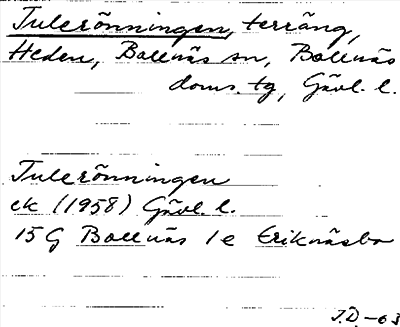 Tulerönningen, terräng,
Heden, Bollnäs sn, Bollnäs
doms. tg, Gävl. l.
Tulerönningen
ek (1958) Gävl. l.
15 G Bollnäs 1 e Eriknäsbo
J.D.-63